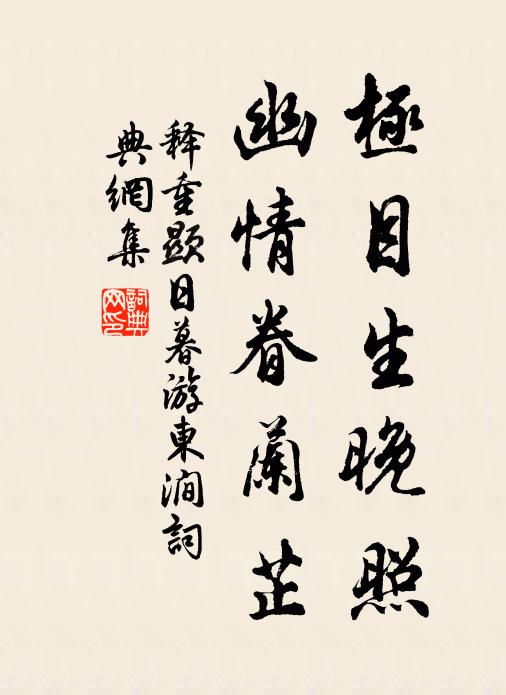 極目生晚照
幽情眷蘭芷
释重顯日暮游東澗詞
典網集
詞典網印